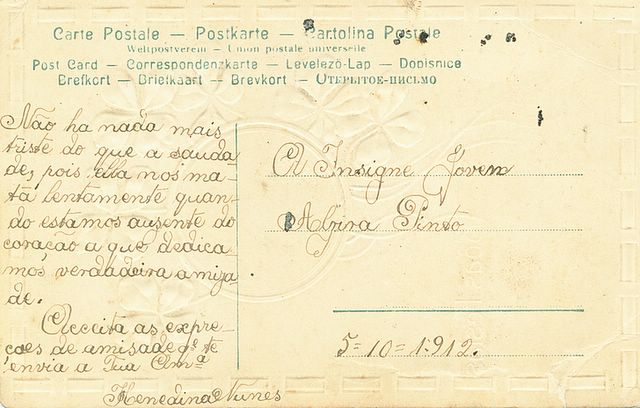 Carte Postale — Postkarte — Cartolina Postale
Weltpostverein — Union postale universelle
Post Card — Correspondenzkarte — Levelező-Lap — Dopisnice
Brefkort — Briefkaart — Brevkort — Открытое-письмо
Não ha nada mais
triste do que a sauda
de, pois ella nos ma-
ta lentamente quan-
do estamos ausente do
coração a que dedica-
mos verdadeira amiza-
de.
Acceita as expre-
ções de amisade q.e te
envia a Tua Am.a
Henedina Nunes
A Insigne Joven
Alzira Pinto
5=10=1.912.